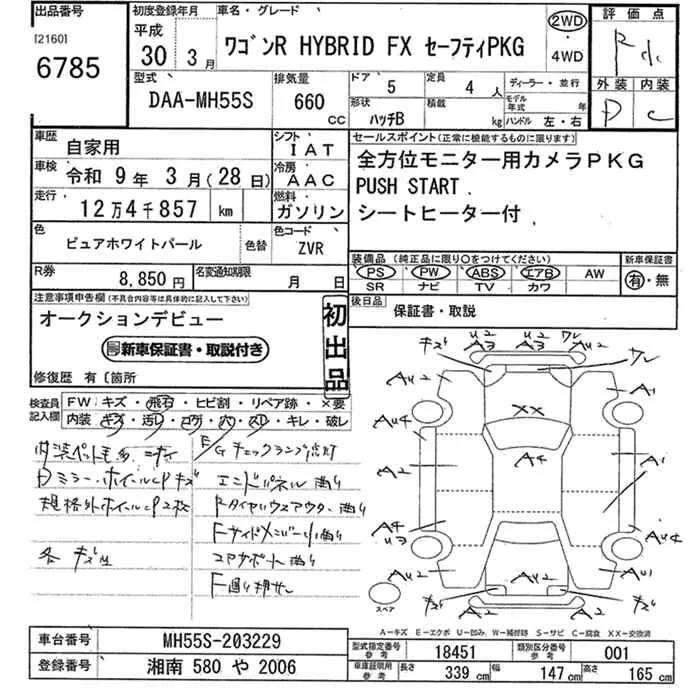 出品番号
[2160]
6785
初度登録年月
平成
30年 3月
車名・グレード
ワゴンR HYBRID FX セーフティPKG
2WD
・
4WD
評価点
R
外装 内装
D C
型式
DAA-MH55S
排気量
660 CC
ドア 5
定員 4人
ディーラー・並行
形状 ハッチB
積載 kg
モデル年式 年
ハンドル 左・右
車歴 自家用
シフト IAT
車検 令和 9年 3月(28日)
冷房 AAC
走行 12万4千857 km
燃料 ガソリン
セールスポイント(正常に機能するものに限ります)
全方位モニター用カメラPKG
PUSH START
シートヒーター付
色 ピュアホワイトパール 色替
色コード ZVR
R券 8,850円
名変通知期限 月 日
装備品 (純正品に限り○をつけてください)
PS PW ABS エアB AW
SR ナビ TV カワ
新車保証書
有・無
後日品 保証書・取説
注意事項申告欄(不具合内容等は具体的に記入して下さい)
オークションデビュー
新車保証書・取説付き
初出品
修復歴 有〔箇所
検査員記入欄
FW キズ・飛石・ヒビ割・リペア跡・×要
内装 キズ・汚レ・コゲ・穴・スレ・キレ・破レ
E/Gチェックランプ点灯
Dミラー・ホイールCPキズ
エンドパネル曲り
規格外ホイールCP2枚
Rタイヤハウスアウター曲り
Fサイドメンバー小曲り
各キズ凹
コアサポート曲り
F廻り押サレ
キズ U2 A3 U2 A3 ワレ ワレ
AU2 A1
AU4 XX
A2 A4 A1
A4 U3 AU4
AU2 AU1
キズ A2 AU2 キズ
スペア
A−キズ E−エクボ U−凹み W−補修跡 S−サビ C−腐食 XX−交換済
車台番号 MH55S-203229
登録番号 湘南 580 や 2006
型式指定番号 参考 18451
類別区分番号 参考 001
車庫証明用 参考 長さ 339 cm 幅 147 cm 高さ 165 cm